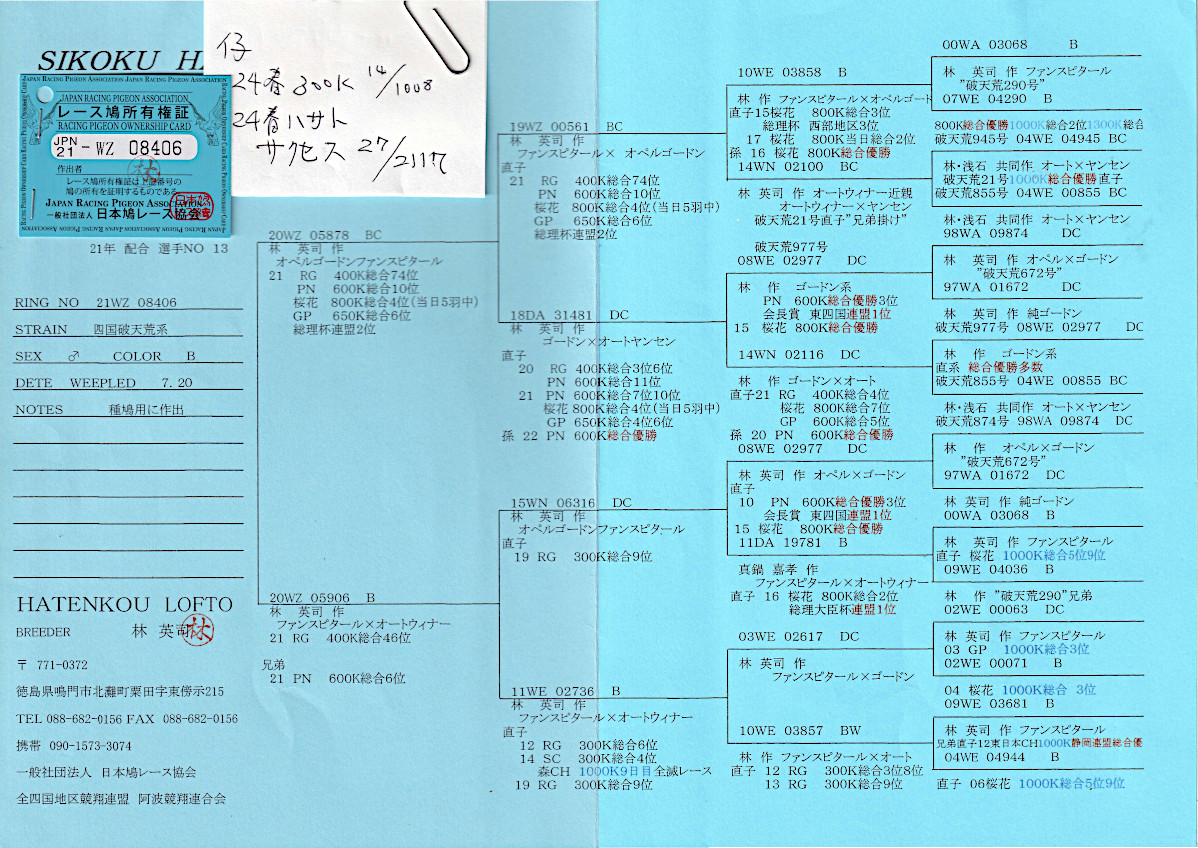 SIKOKU HA
JAPAN RACING PIGEON ASSOCIATION JAPAN RACING PIGEON ASSOCIATION
JAPAN RACING PIGEON ASSOCIATION
レース鳩所有権証
RACING PIGEON OWNERSHIP CARD
JPN 21 - WZ 08406
作出者
林
レース鳩所有権証は上記番号の
鳩の所有を証明するものである
JAPAN RACING PIGEON ASSOCIATION
一般社団法人 日本鳩レース協会
仔
24春 300K 14/1008
24春ハサト
サクセス 27/211
21年 配合 選手NO 13
RING NO 21WZ 08406
STRAIN 四国破天荒系
SEX ♂ COLOR B
DETE WEEPLED 7.20
NOTES 種鳩用に作出
HATENKOU LOFTO
BREEDER 林 英司
林
〒 771-0372
徳島県鳴門市北灘町粟田字東傍示215
TEL 088-682-0156 FAX 088-682-0156
携帯 090-1573-3074
一般社団法人 日本鳩レース協会
全四国地区競翔連盟 阿波競翔連合会
20WZ 05878 BC
林 英司 作
オペルゴードンファンスピタール
21 RG 400K総合74位
PN 600K総合10位
桜花 800K総合4位(当日5羽中)
GP 650K総合6位
総理杯連盟2位
20WZ 05906 B
林 英司 作
ファンスピタール×オートウィナー
21 RG 400K総合46位
兄弟
21 PN 600K総合6位
19WZ 00561 BC
林 英司 作
ファンスピタール× オペルゴードン
直子
21 RG 400K総合74位
PN 600K総合10位
桜花 800K総合4位(当日5羽中)
GP 650K総合6位
総理杯連盟2位
18DA 31481 DC
林 英司 作
ゴードン×オートヤンセン
直子
20 RG 400K総合3位6位
PN 600K総合11位
21 PN 600K総合7位10位
桜花 800K総合4位(当日5羽中)
GP 650K総合4位6位
孫 22 PN 600K総合優勝
15WN 06316 DC
林 英司 作
オペルゴードンファンスピタール
直子
19 RG 300K総合9位
11WE 02736 B
林 英司 作
ファンスピタール×オートウィナー
直子
12 RG 300K総合6位
14 SC 300K総合4位
森CH 1000K9日目全滅レース
19 RG 300K総合9位
10WE 03858 B
林 作 ファンスピタール×オペルゴード
直子15桜花 800K総合3位
総理杯 西部地区3位
17 桜花 800K当日総合2位
孫 16 桜花 800K総合優勝
14WN 02100 BC
林 英司 作 オートウィナー近親
オートウィナー×ヤンセン
破天荒21号直子"兄弟掛け"
破天荒977号
08WE 02977 DC
林 作 ゴードン系
PN 600K総合優勝3位
会長賞 東四国連盟1位
15 桜花 800K総合優勝
14WN 02116 DC
林 作 ゴードン×オート
直子21 RG 400K総合4位
桜花 800K総合7位
GP 600K総合5位
孫 20 PN 600K総合優勝
08WE 02977 DC
林 英司 作 オペル×ゴードン
直子
10 PN 600K総合優勝3位
会長賞 東四国連盟1位
15 桜花 800K総合優勝
11DA 19781 B
真鍋 嘉孝 作
ファンスピタール×オートウィナー
直子 16 桜花 800K総合2位
総理大臣杯連盟1位
03WE 02617 DC
林 英司 作
ファンスピタール×ゴードン
10WE 03857 BW
林 作 ファンスピタール×オート
直子 12 RG 300K総合3位8位
13 RG 300K総合9位
00WA 03068 B
林 英司 作 ファンスピタール
"破天荒290号"
07WE 04290 B
800K総合優勝1000K総合2位1300K総合
破天荒945号 04WE 04945 BC
林・浅石 共同作 オート×ヤンセン
破天荒21号1000K総合優勝直子
破天荒855号 04WE 00855 BC
林・浅石 共同作 オート×ヤンセン
98WA 09874 DC
林 英司 作 オペル×ゴードン
"破天荒672号"
97WA 01672 DC
林 英司 作 純ゴードン
破天荒977号 08WE 02977 DC
林 作 ゴードン系
直系 総合優勝多数
破天荒855号 04WE 00855 BC
林・浅石 共同作 オート×ヤンセン
破天荒874号 98WA 09874 DC
林 作 オペル×ゴードン
"破天荒672号"
97WA 01672 DC
林 英司 作 純ゴードン
00WA 03068 B
林 英司 作 ファンスピタール
直子 桜花 1000K総合5位9位
09WE 04036 B
林 作 "破天荒290"兄弟
02WE 00063 DC
林 英司 作 ファンスピタール
03 GP 1000K総合3位
02WE 00071 B
04 桜花 1000K総合 3位
09WE 03681 B
林 英司 作 ファンスピタール
兄弟直子12東日本CH1000K静岡連盟総合優
04WE 04944 B
直子 06桜花 1000K総合5位9位